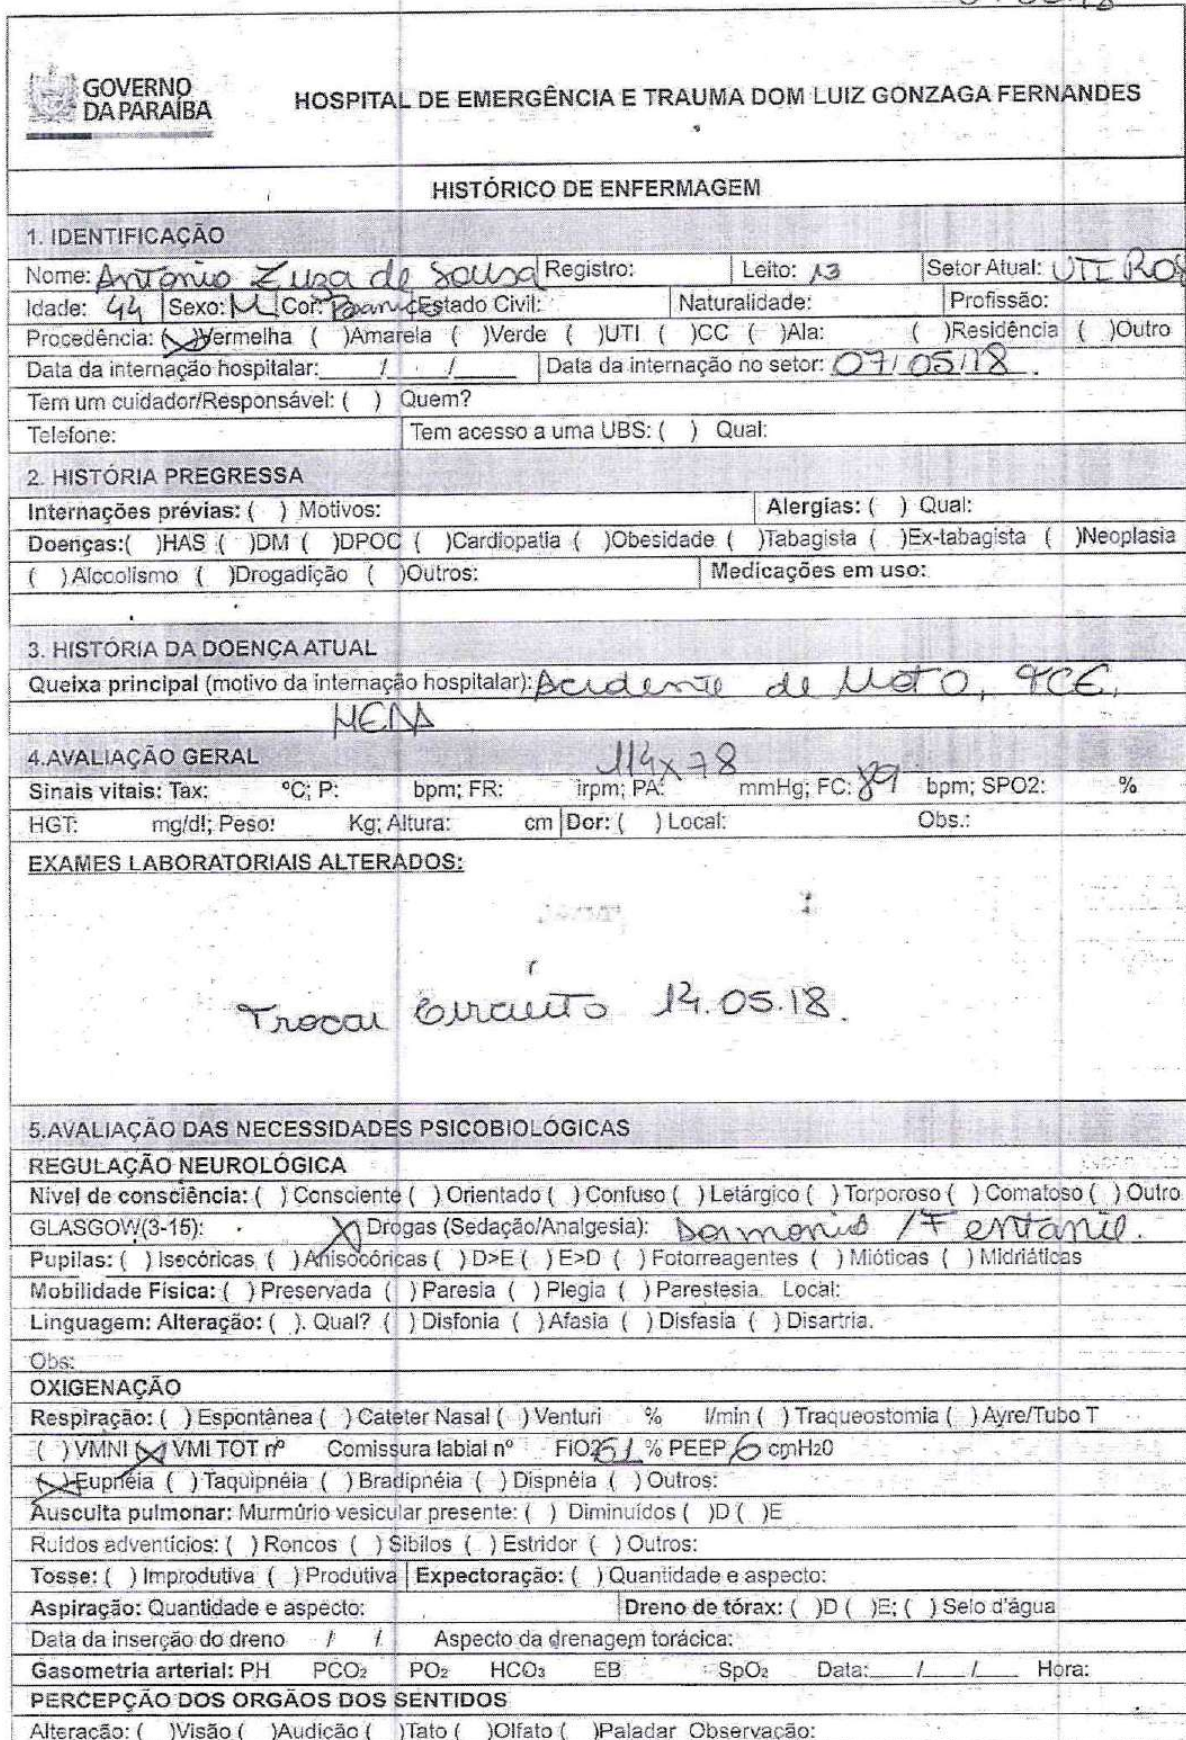 GOVERNO
DA PARAÍBA
HOSPITAL DE EMERGÊNCIA E TRAUMA DOM LUIZ GONZAGA FERNANDES
HISTÓRICO DE ENFERMAGEM
1. IDENTIFICAÇÃO
Nome: Antonio Zuza de Sousa Registro: Leito: 13 Setor Atual: UTI
Idade: 44 Sexo: M Cor: Estado Civil: Naturalidade: Profissão:
Procedência: (X)Vermelha ( )Amarela ( )Verde ( )UTI ( )CC ( )Ala: ( )Residência ( )Outro
Data da internação hospitalar: / / Data da internação no setor: 07/05/18.
Tem um cuidador/Responsável: ( ) Quem?
Telefone: Tem acesso a uma UBS: ( ) Qual:
2. HISTÓRIA PREGRESSA
Internações prévias: ( ) Motivos: Alergias: ( ) Qual:
Doenças:( )HAS ( )DM ( )DPOC ( )Cardiopatia ( )Obesidade ( )Tabagista ( )Ex-tabagista ( )Neoplasia
( )Alcoolismo ( )Drogadição ( )Outros: Medicações em uso:
3. HISTÓRIA DA DOENÇA ATUAL
Queixa principal (motivo da internação hospitalar): Acidente de Moto, TCE,
4.AVALIAÇÃO GERAL
Sinais vitais: Tax: ºC; P: bpm; FR: irpm; PA: 114x78 mmHg; FC: 89 bpm; SPO2: %
HGT: mg/dl; Peso: Kg; Altura: cm Dor: ( ) Local: Obs.:
EXAMES LABORATORIAIS ALTERADOS:
Trocar Circuito 14.05.18.
5.AVALIAÇÃO DAS NECESSIDADES PSICOBIOLÓGICAS
REGULAÇÃO NEUROLÓGICA
Nível de consciência: ( ) Consciente ( ) Orientado ( ) Confuso ( ) Letárgico ( ) Torporoso ( ) Comatoso ( ) Outro
GLASGOW(3-15): (X) Drogas (Sedação/Analgesia): Dormonid / Fentanil.
Pupilas: ( ) Isocóricas ( ) Anisocóricas ( ) D>E ( ) E>D ( ) Fotorreagentes ( ) Mióticas ( ) Midriáticas
Mobilidade Física: ( ) Preservada ( ) Paresia ( ) Plegia ( ) Parestesia. Local:
Linguagem: Alteração: ( ). Qual? ( ) Disfonia ( ) Afasia ( ) Disfasia ( ) Disartria.
Obs:
OXIGENAÇÃO
Respiração: ( ) Espontânea ( ) Cateter Nasal ( ) Venturi % l/min ( ) Traqueostomia ( ) Ayre/Tubo T
( ) VMNI (X) VMI TOT nº Comissura labial nº FIO2 51 % PEEP 6 cmH20
(X) Eupnéia ( ) Taquipnéia ( ) Bradipnéia ( ) Dispnéia ( ) Outros:
Ausculta pulmonar: Murmúrio vesicular presente: ( ) Diminuídos ( )D ( )E
Ruidos adventícios: ( ) Roncos ( ) Sibilos ( ) Estridor ( ) Outros:
Tosse: ( ) Improdutiva ( ) Produtiva Expectoração: ( ) Quantidade e aspecto:
Aspiração: Quantidade e aspecto: Dreno de tórax: ( )D ( )E; ( ) Selo d'água
Data da inserção do dreno / / Aspecto da drenagem torácica:
Gasometria arterial: PH PCO₂ PO₂ HCO₃ EB SpO₂ Data: / / Hora:
PERCEPÇÃO DOS ORGÃOS DOS SENTIDOS
Alteração: ( )Visão ( )Audição ( )Tato ( )Olfato ( )Paladar Observação: